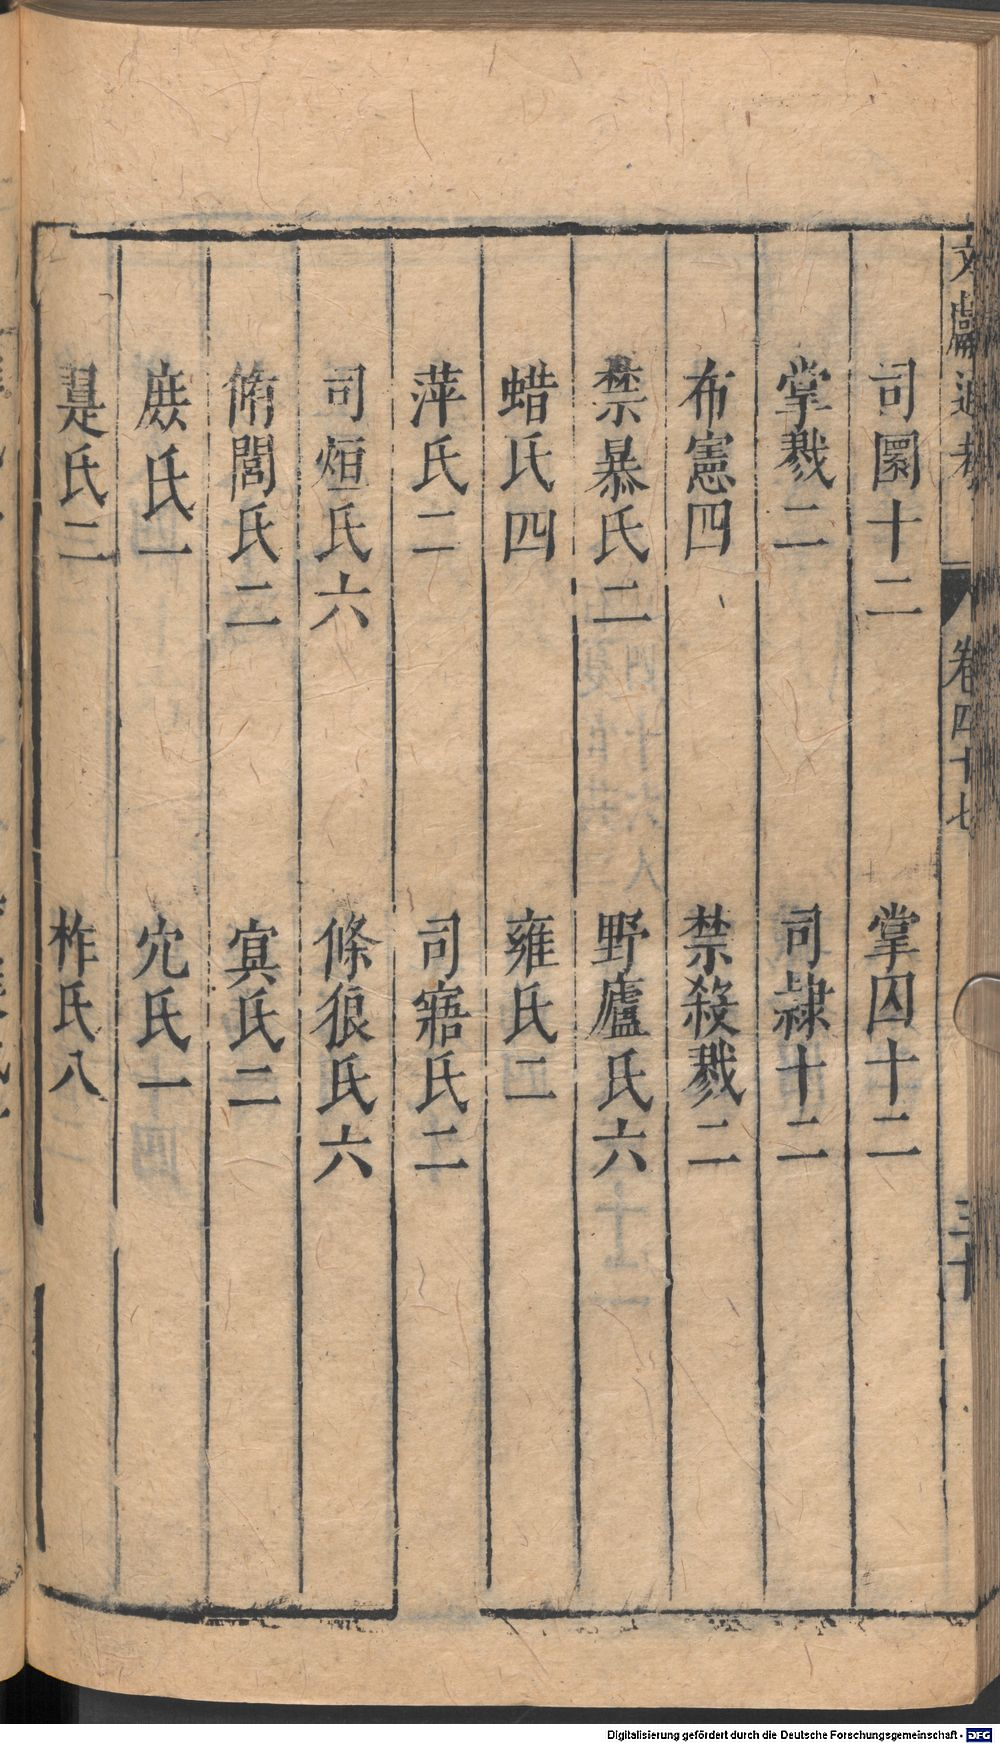 文獻通考 卷四十七 三十
司圜十二 掌囚十二
掌戮二 司隸十二
布憲四 禁殺戮二
禁暴氏二 野廬氏六
蜡氏四 雍氏二
萍氏二 司寤氏二
司烜氏六 條狼氏六
脩閭氏二 寘氏二
庶氏一 穴氏一
翨氏二 柞氏八
Digitalisierung gefördert durch die Deutsche Forschungsgemeinschaft - DFG